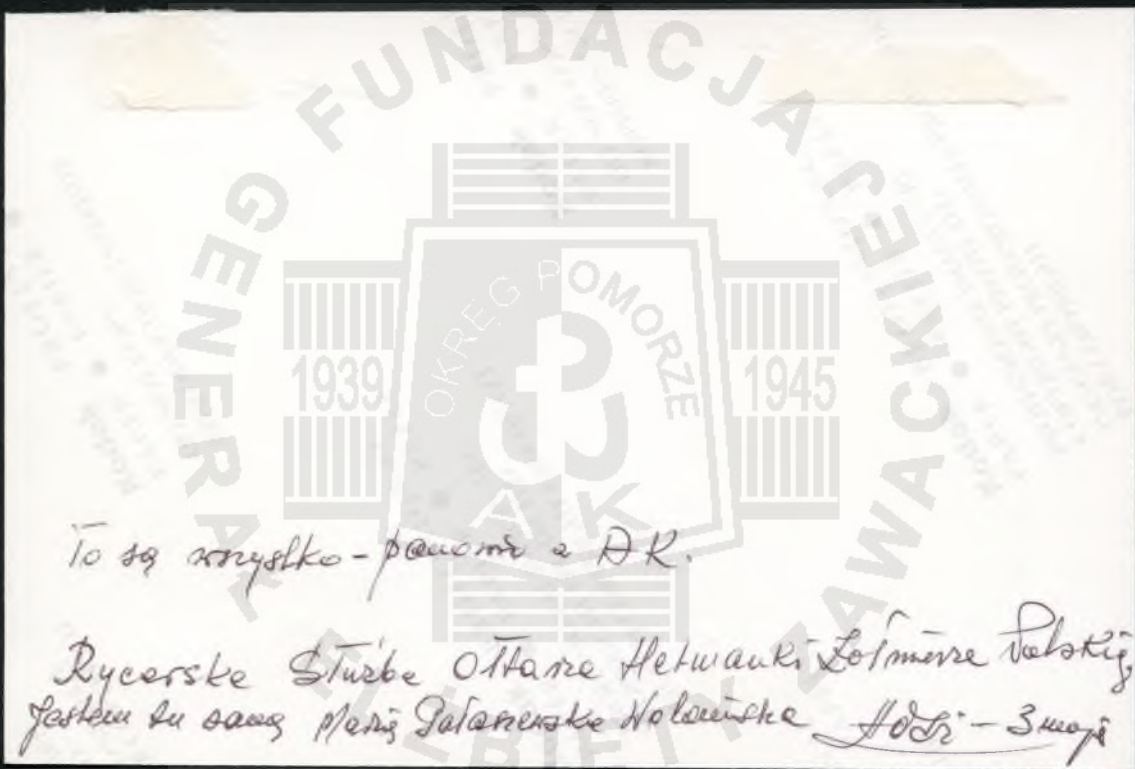 FUNDACJA GENERAŁ ELŻBIETY ZAWACKIEJ
OKRĘG POMORZE
1939
1945
AK
To są wszystko - panowie z AK.
Rycerska Służba Ołtarza Hetmanki Żołnierza Polskiego,
Jestem tu sama Maria Wołomińska - 3 maja